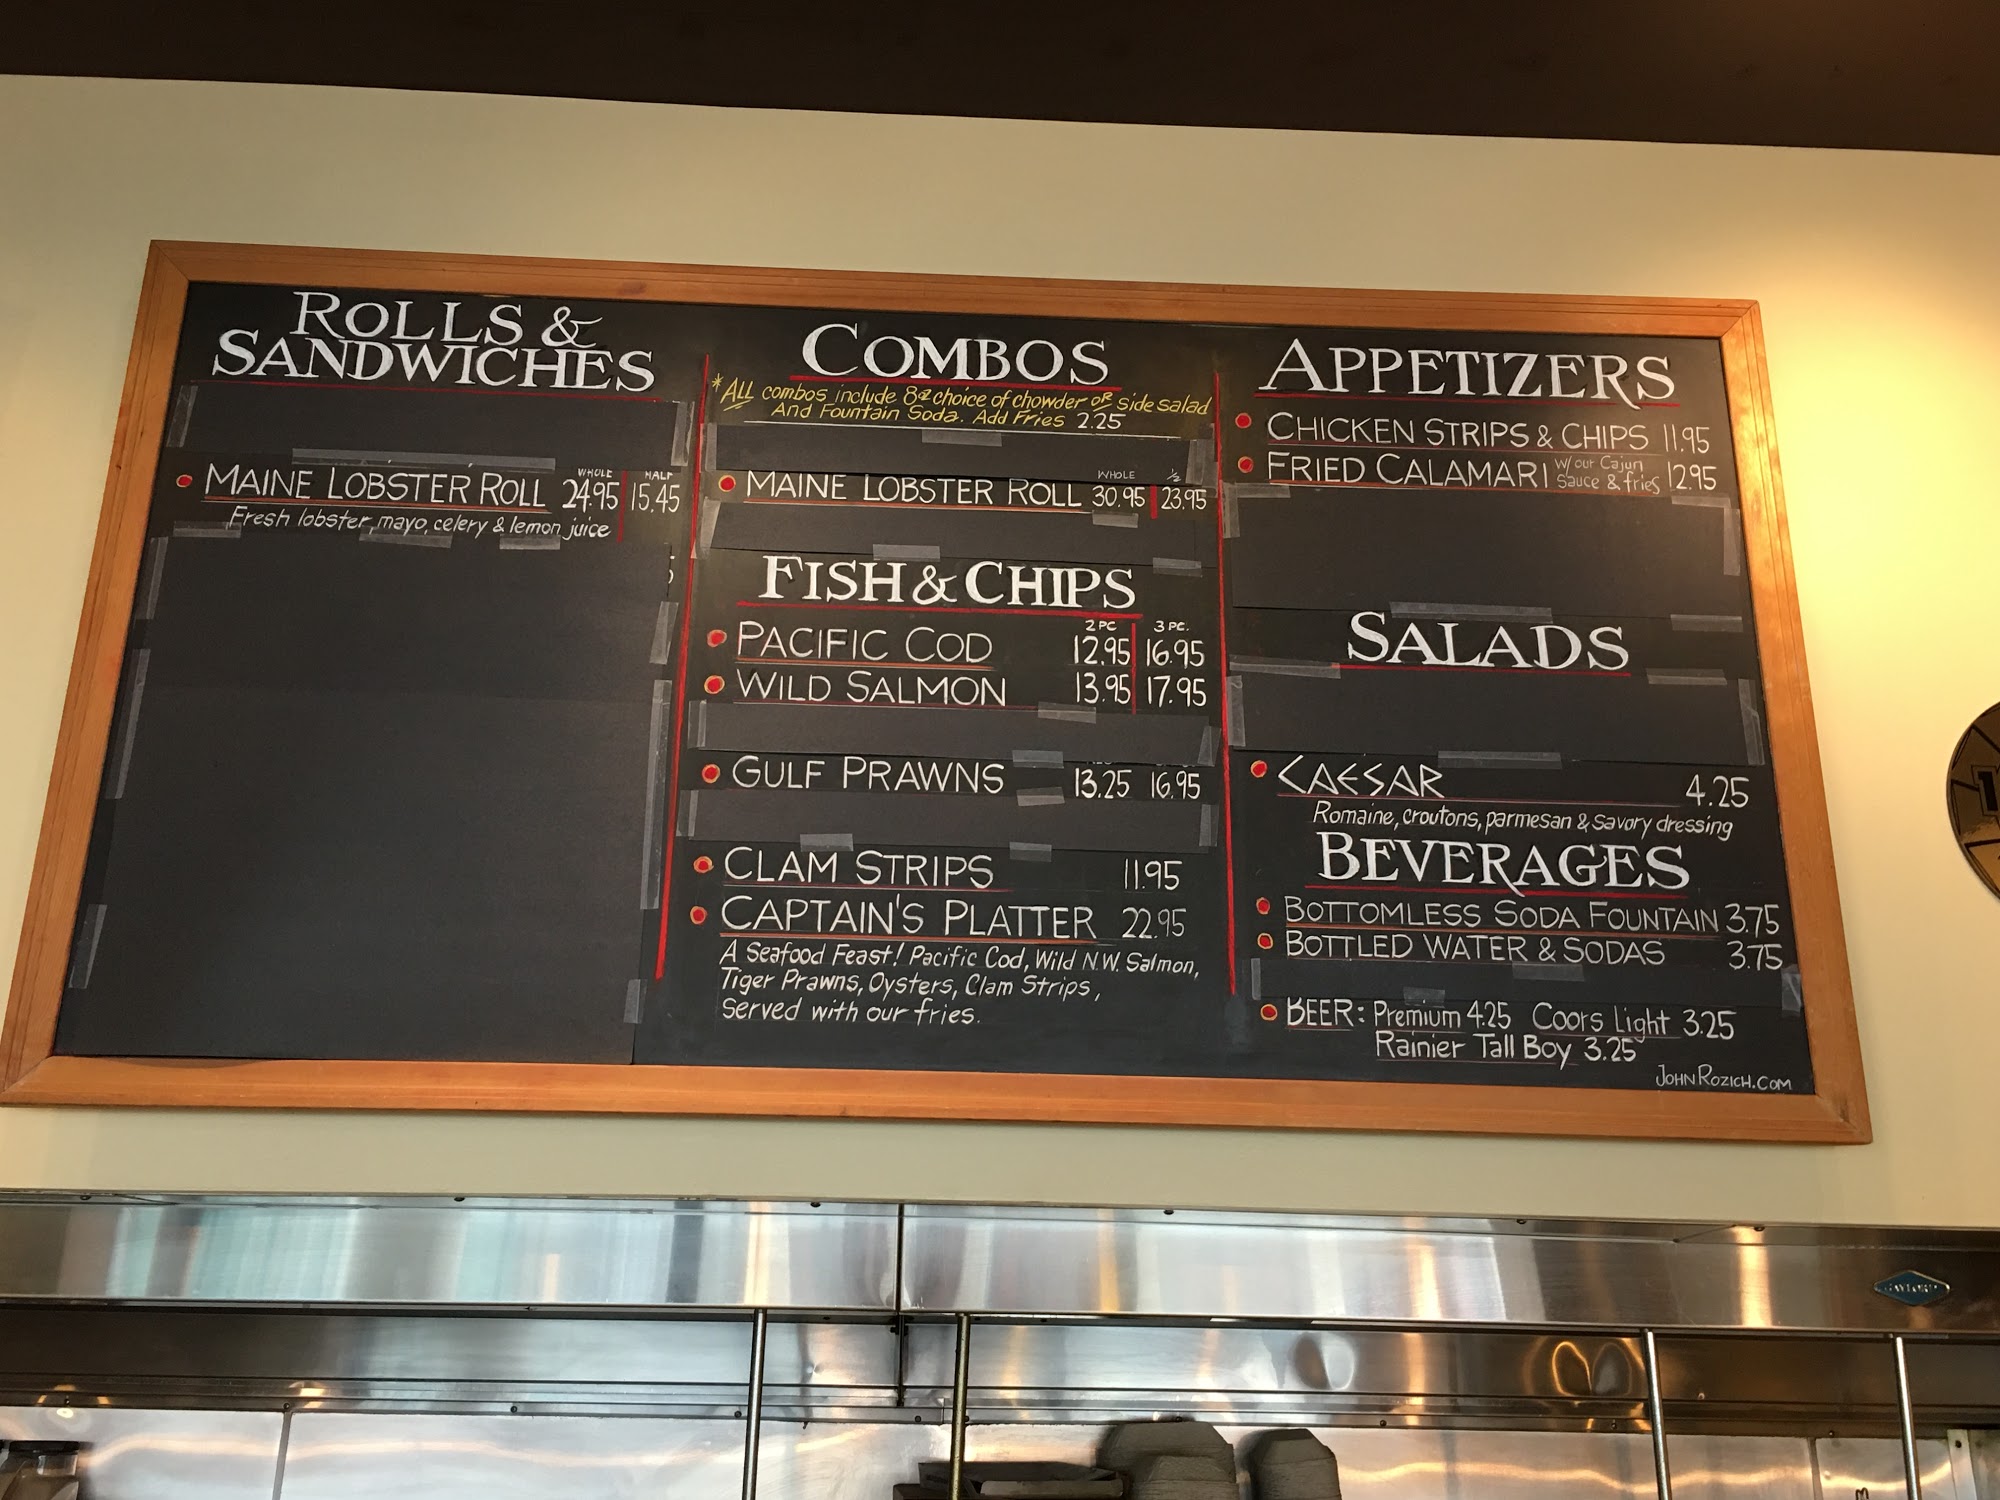 ROLLS &
SANDWICHES
WHOLE HALF
MAINE LOBSTER ROLL 24.95 15.45
Fresh lobster, mayo, celery & lemon juice
COMBOS
*ALL combos include 8oz choice of chowder OR side salad
And Fountain Soda. Add Fries 2.25
WHOLE ½
MAINE LOBSTER ROLL 30.95 23.95
FISH & CHIPS
2 PC 3 PC.
PACIFIC COD 12.95 16.95
WILD SALMON 13.95 17.95
GULF PRAWNS 13.25 16.95
CLAM STRIPS 11.95
CAPTAIN'S PLATTER 22.95
A Seafood Feast! Pacific Cod, Wild N.W. Salmon,
Tiger Prawns, Oysters, Clam Strips,
Served with our fries.
APPETIZERS
CHICKEN STRIPS & CHIPS 11.95
FRIED CALAMARI w/our Cajun
Sauce & fries 12.95
SALADS
CAESAR 4.25
Romaine, croutons, parmesan & savory dressing
BEVERAGES
BOTTOMLESS SODA FOUNTAIN 3.75
BOTTLED WATER & SODAS 3.75
BEER: Premium 4.25 Coors Light 3.25
Rainier Tall Boy 3.25
JOHNROZICH.COM